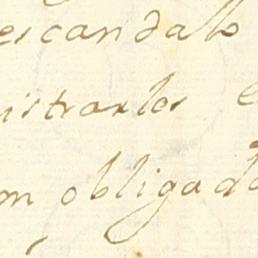 escandalo
istrarles e
on obligado